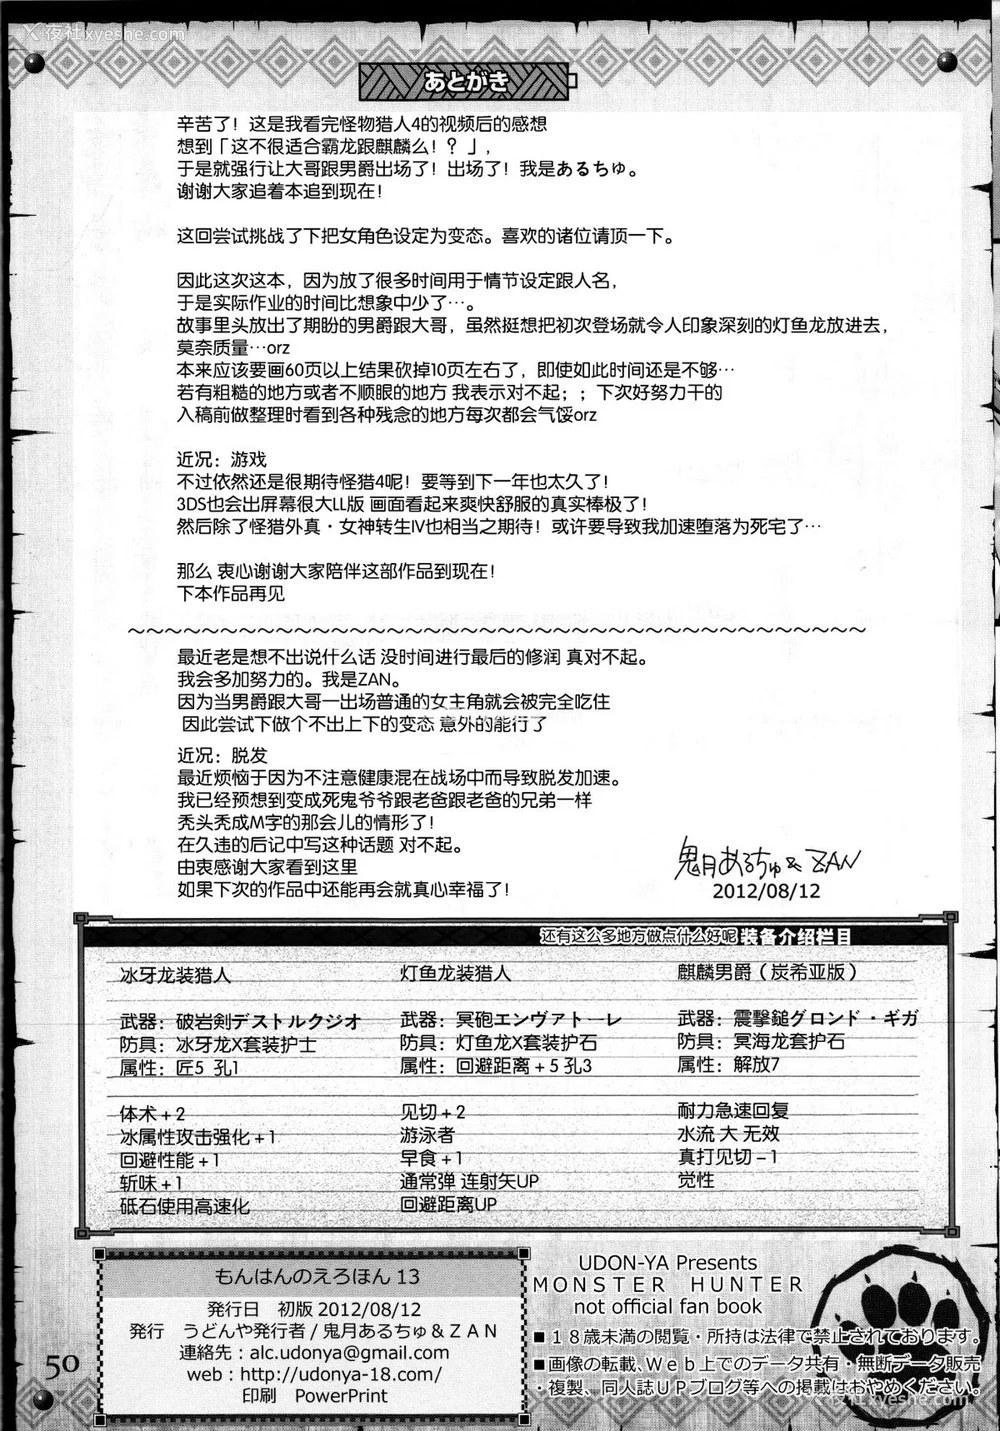 夜社xyeshe.com
あとがき
辛苦了！这是我看完怪物猎人4的视频后的感想
想到「这不很适合霸龙跟麒麟么！？」，
于是就强行让大哥跟男爵出场了！出场了！我是あるちゅ。
谢谢大家追着本追到现在！
这回尝试挑战了下把女角色设定为变态。喜欢的诸位请顶一下。
因此这次这本，因为放了很多时间用于情节设定跟人名，
于是实际作业的时间比想象中少了…。
故事里头放出了期盼的男爵跟大哥，虽然挺想把初次登场就令人印象深刻的灯鱼龙放进去，
莫奈质量…orz
本来应该要画60页以上结果砍掉10页左右了，即使如此时间还是不够…
若有粗糙的地方或者不顺眼的地方 我表示对不起；；下次好努力干的
入稿前做整理时看到各种残念的地方每次都会气馁orz
近况：游戏
不过依然还是很期待怪猎4呢！要等到下一年也太久了！
3DS也会出屏幕很大LL版 画面看起来爽快舒服的真实棒极了！
然后除了怪猎外真・女神转生IV也相当之期待！或许要导致我加速堕落为死宅了…
那么 衷心谢谢大家陪伴这部作品到现在！
下本作品再见
～～～～～～～～～～～～～～～～～～～～～～～～～～～～～～～～～～～～～～～～
最近老是想不出说什么话 没时间进行最后的修润 真对不起。
我会多加努力的。我是ZAN。
因为当男爵跟大哥一出场普通的女主角就会被完全吃住
因此尝试下做个不出上下的变态 意外的能行了
近况：脱发
最近烦恼于因为不注意健康混在战场中而导致脱发加速。
我已经预想到变成死鬼爷爷跟老爸跟老爸的兄弟一样
秃头秃成M字的那会儿的情形了！
在久违的后记中写这种话题 对不起。
由衷感谢大家看到这里
如果下次的作品中还能再会就真心幸福了！
鬼月あるちゅ& ZAN
2012/08/12
还有这么多地方做点什么好呢 装备介绍栏目
冰牙龙装猎人
武器：破岩剣デストルクジオ
防具：冰牙龙X套装护士
属性：匠5 孔1
体术+2
冰属性攻击强化+1
回避性能+1
斩味+1
砥石使用高速化
灯鱼龙装猎人
武器：冥砲エンヴァトーレ
防具：灯鱼龙X套装护石
属性：回避距离+5 孔3
见切+2
游泳者
早食+1
通常弹 连射矢UP
回避距离UP
麒麟男爵（炭希亚版）
武器：震撃鎚グロンド・ギガ
防具：冥海龙套护石
属性：解放7
耐力急速回复
水流 大 无效
真打见切-1
觉性
もんはんのえろほん 13
発行日　初版 2012/08/12
発行　うどんや発行者/鬼月あるちゅ&ＺＡＮ
連絡先：alc.udonya@gmail.com
web：http://udonya-18.com/
印刷　PowerPrint
UDON-YA Presents
MONSTER HUNTER
not official fan book
■１８歳未満の閲覧・所持は法律で禁止されております。
■画像の転載、Ｗｅｂ上でのデータ共有・無断データ販売
・複製、同人誌ＵＰブログ等への掲載はおやめください。
50
夜社xyeshe.com